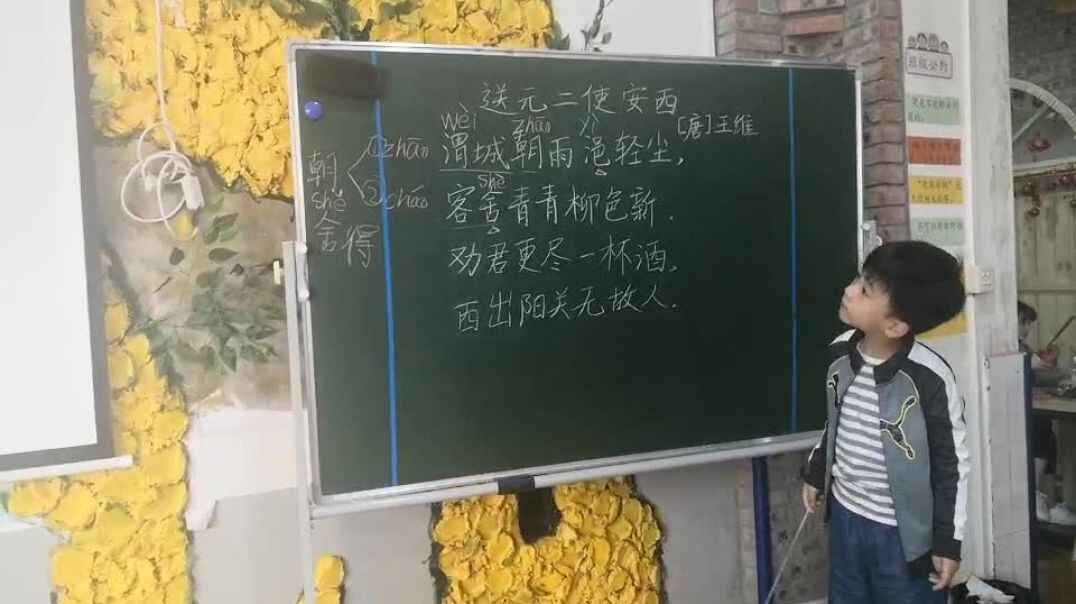 送元二使安西
[唐]王维
wèi zhāo yì
渭城朝雨浥轻尘,
shè
客舍青青柳色新.
劝君更尽一杯酒,
西出阳关无故人.
朝 ①zhāo
②cháo
shě
舍得
班级公约